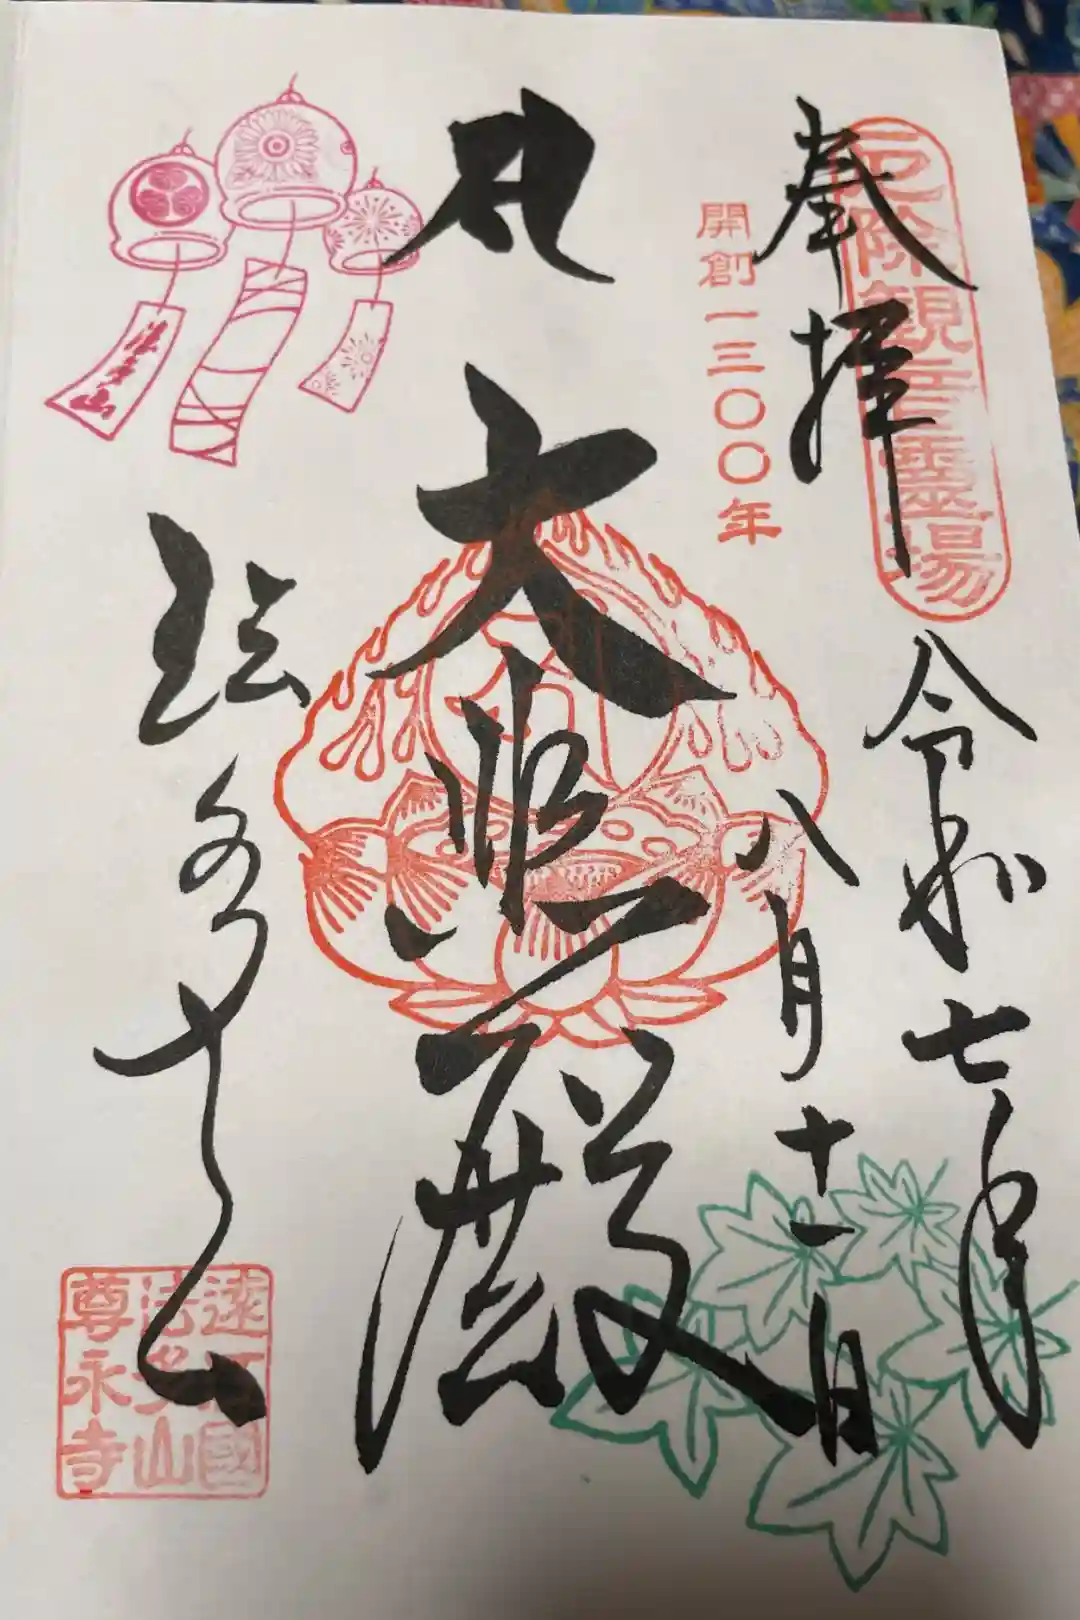 奉拝
厄除観音霊場
開創一三〇〇年
令和七年
八月十一日
大悲殿
法多山
法多山
遠江國
法多山
尊永寺